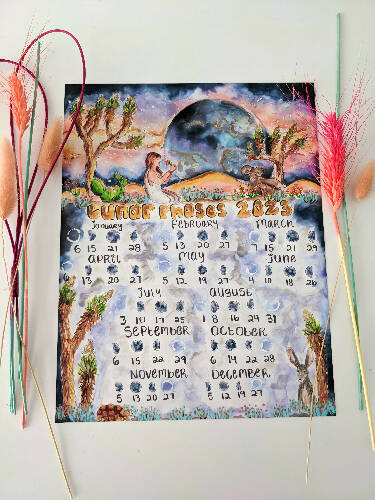 Lunar Phases 2023
January February March
6 15 21 28 5 13 20 27 7 15 21 29
April May June
6 13 20 27 5 12 19 27 4 10 18 26
July August
3 10 17 25 1 8 16 24 31
September October
6 15 22 29 6 14 22 28
November December
5 13 20 27 5 12 19 27